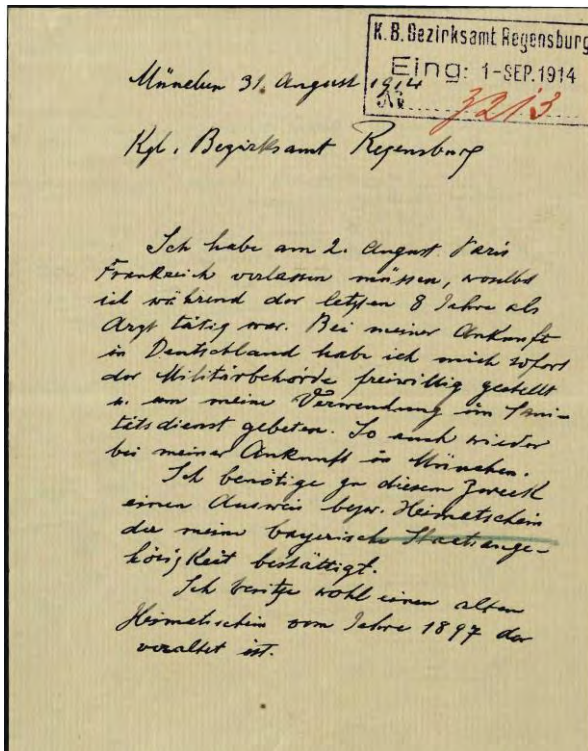 K.B.Bezirksamt Regensburg
Eing: 1-SEP.1914
No 3213
München 31. August 1914
Kgl. Bezirksamt Regensburg
Ich habe am 2. August Paris
Frankreich verlassen müssen, woselbst
ich während der letzten 8 Jahre als
Arzt tätig war. Bei meiner Ankunft
in Deutschland habe ich mich sofort
der Militärbehörde freiwillig gestellt
u. um meine Verwendung im Sani-
tätsdienst gebeten. So auch wieder
bei meiner Ankunft in München.
Ich benötige zu diesem Zweck
einen Ausweis bezw. Heimatschein
der meine bayerische Staatsange-
hörigkeit bestättigt.
Ich besitze wohl einen alten
Heimatschein vom Jahre 1897 der
veraltet ist.